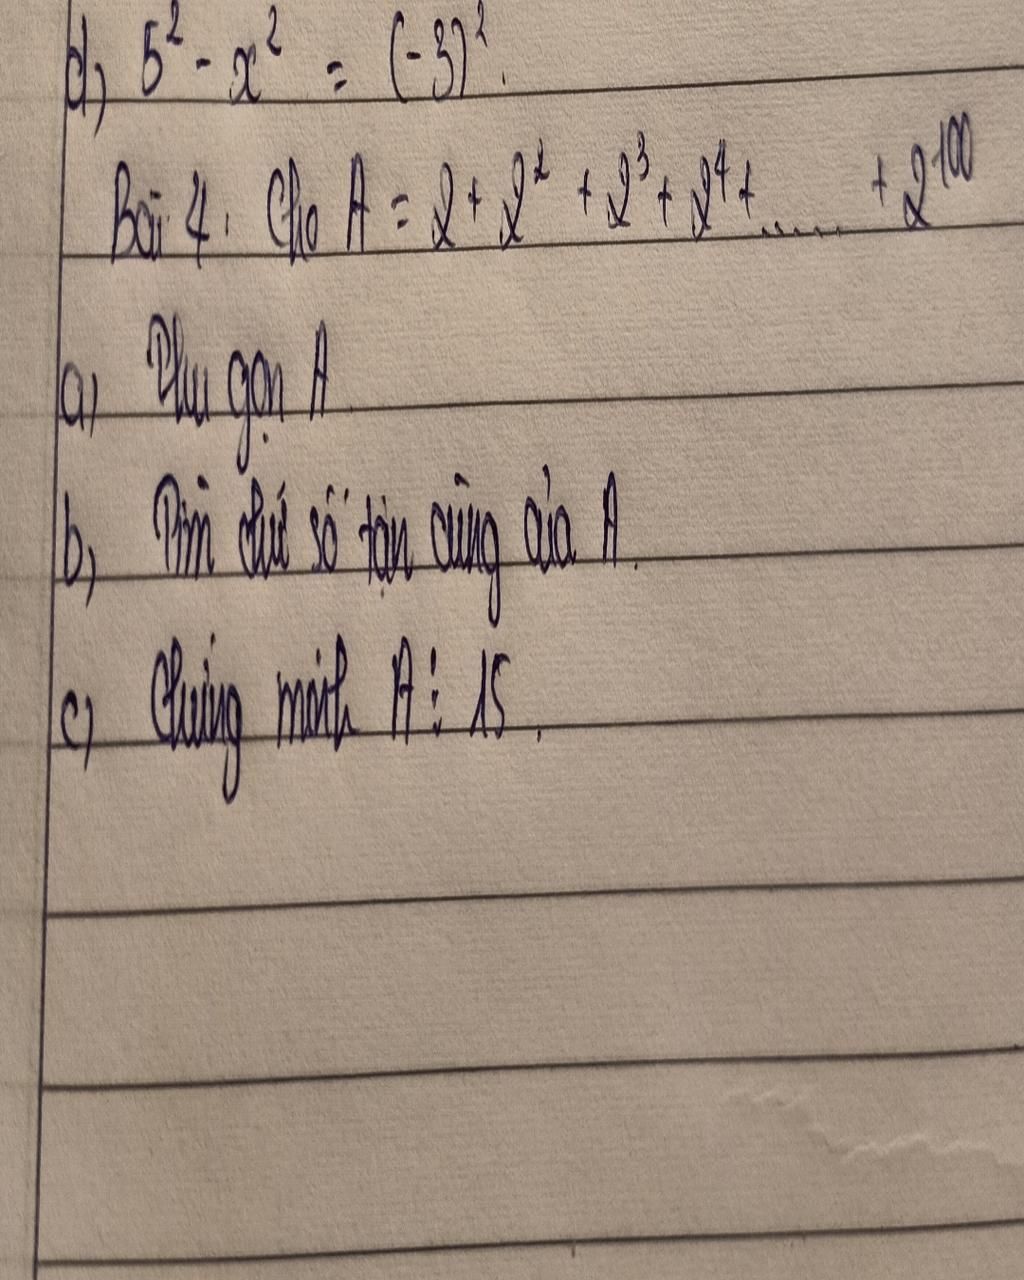 d, 5² - x² = (-3)².
Bài 4. Cho A = 2 + 2² + 2³ + 2⁴ + ...... + 2¹⁰⁰
a, Thu gọn A
b, Tìm chữ số tận cùng của A.
c, Chứng minh A ⋮ 15.